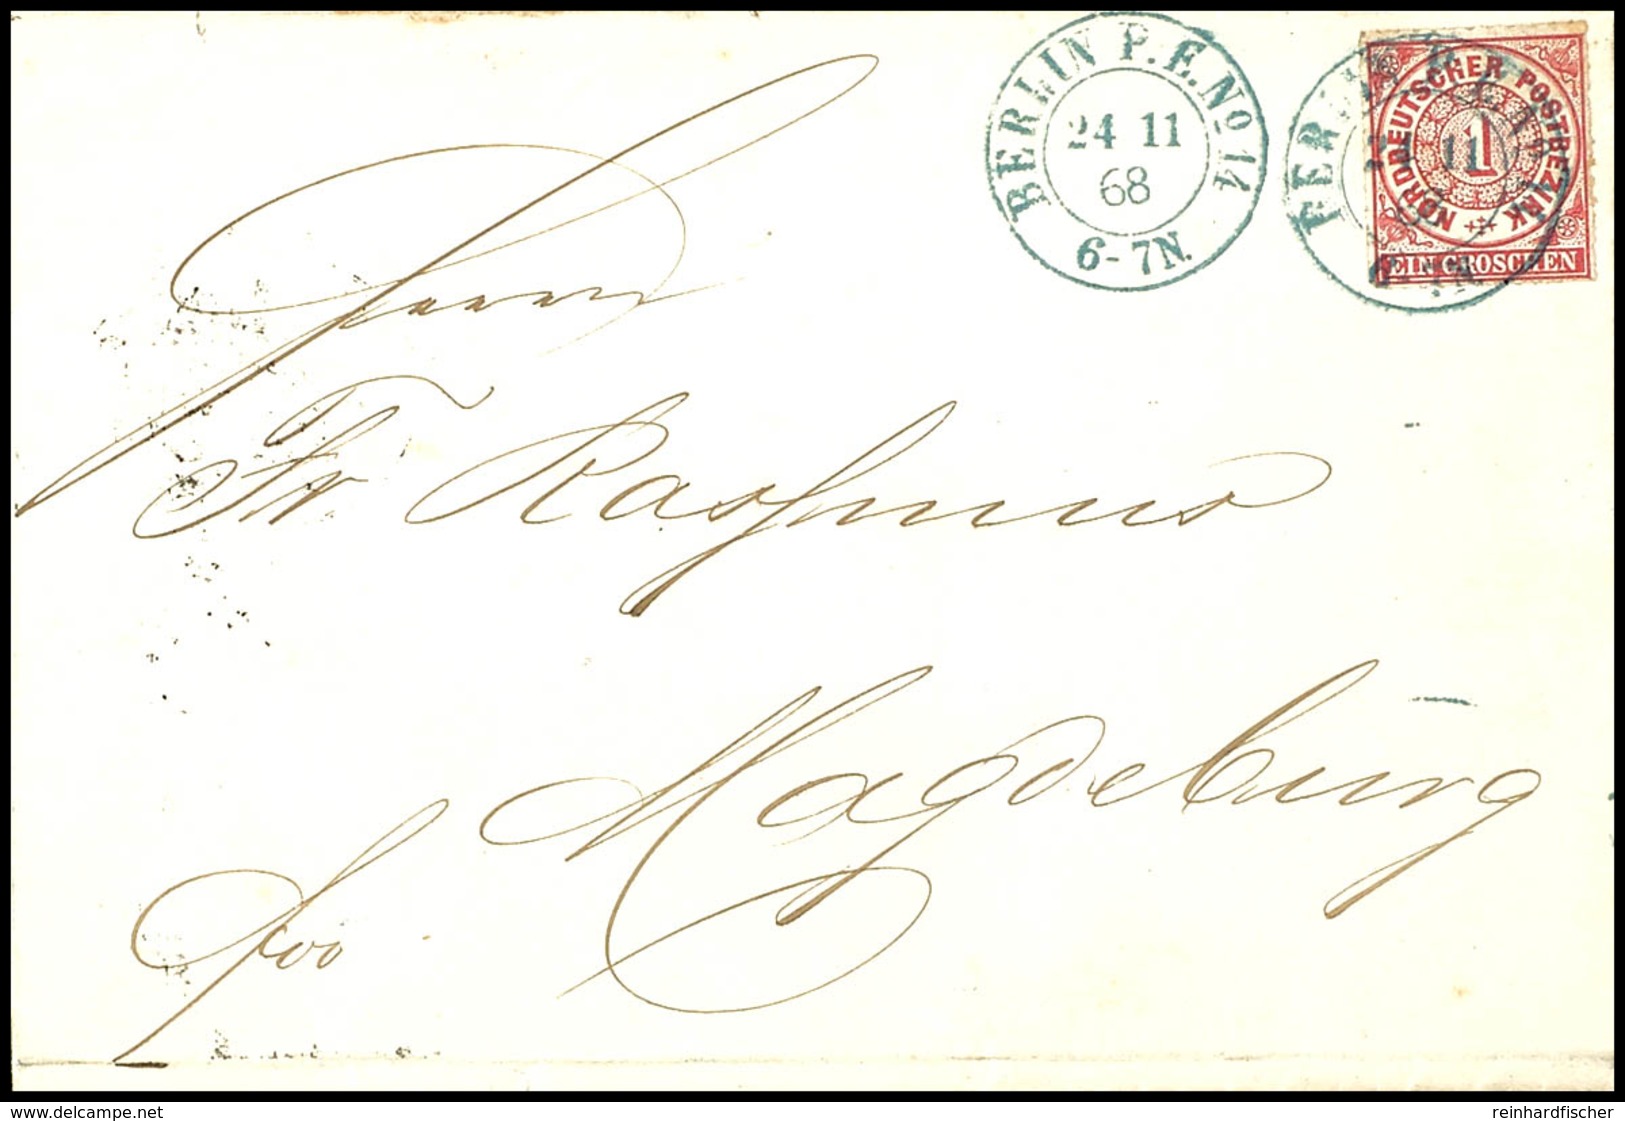 BERLIN P.E.No 14
24 11
68
6-7N.
NORDDEUTSCHER POSTBEZIRK
1
EIN GROSCHEN
Herrn
Fr Rasmus
Magdeburg
fco
www.delcampe.net
reinhardfischer